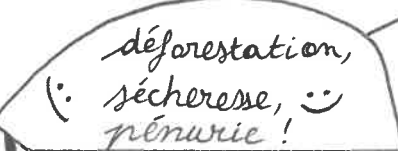 déforestation,
sécheresse,
pénurie !